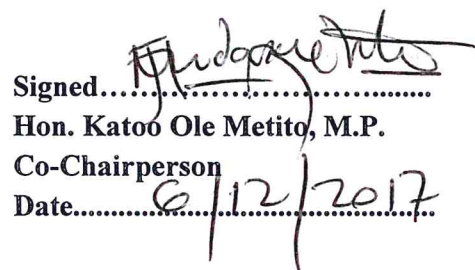 Signed..............................
Hon. Katoo Ole Metito, M.P.
Co-Chairperson
Date.........6/12/2017.........